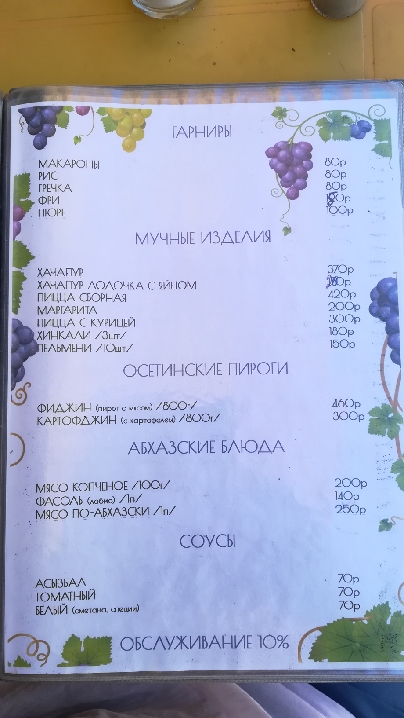 ГАРНИРЫ
МАКАРОНЫ 80р
РИС 80р
ГРЕЧКА 80р
ФРИ
ПЮРЕ 100р
МУЧНЫЕ ИЗДЕЛИЯ
ХАЧАПУР 370р
ХАЧАПУР ЛОДОЧКА С ЯЙЦОМ
ПИЦЦА СБОРНАЯ 420р
МАРГАРИТА 200р
ПИЦЦА С КУРИЦЕЙ 300р
ХИНКАЛИ /3шт/ 180р
ПЕЛЬМЕНИ /10шт/ 150р
ОСЕТИНСКИЕ ПИРОГИ
ФИДЖИН (пирог с мясом) /800г/ 450р
КАРТОФДЖИН (с картофелем) /800г/ 300р
АБХАЗСКИЕ БЛЮДА
МЯСО КОПЧЕНОЕ /100г/ 200р
ФАСОЛЬ (лобио) /1п/ 140р
МЯСО ПО-АБХАЗСКИ /1п/ 250р
СОУСЫ
АСЫЗБАЛ 70р
ТОМАТНЫЙ 70р
БЕЛЫЙ (сметана, специи) 70р
ОБСЛУЖИВАНИЕ 10%